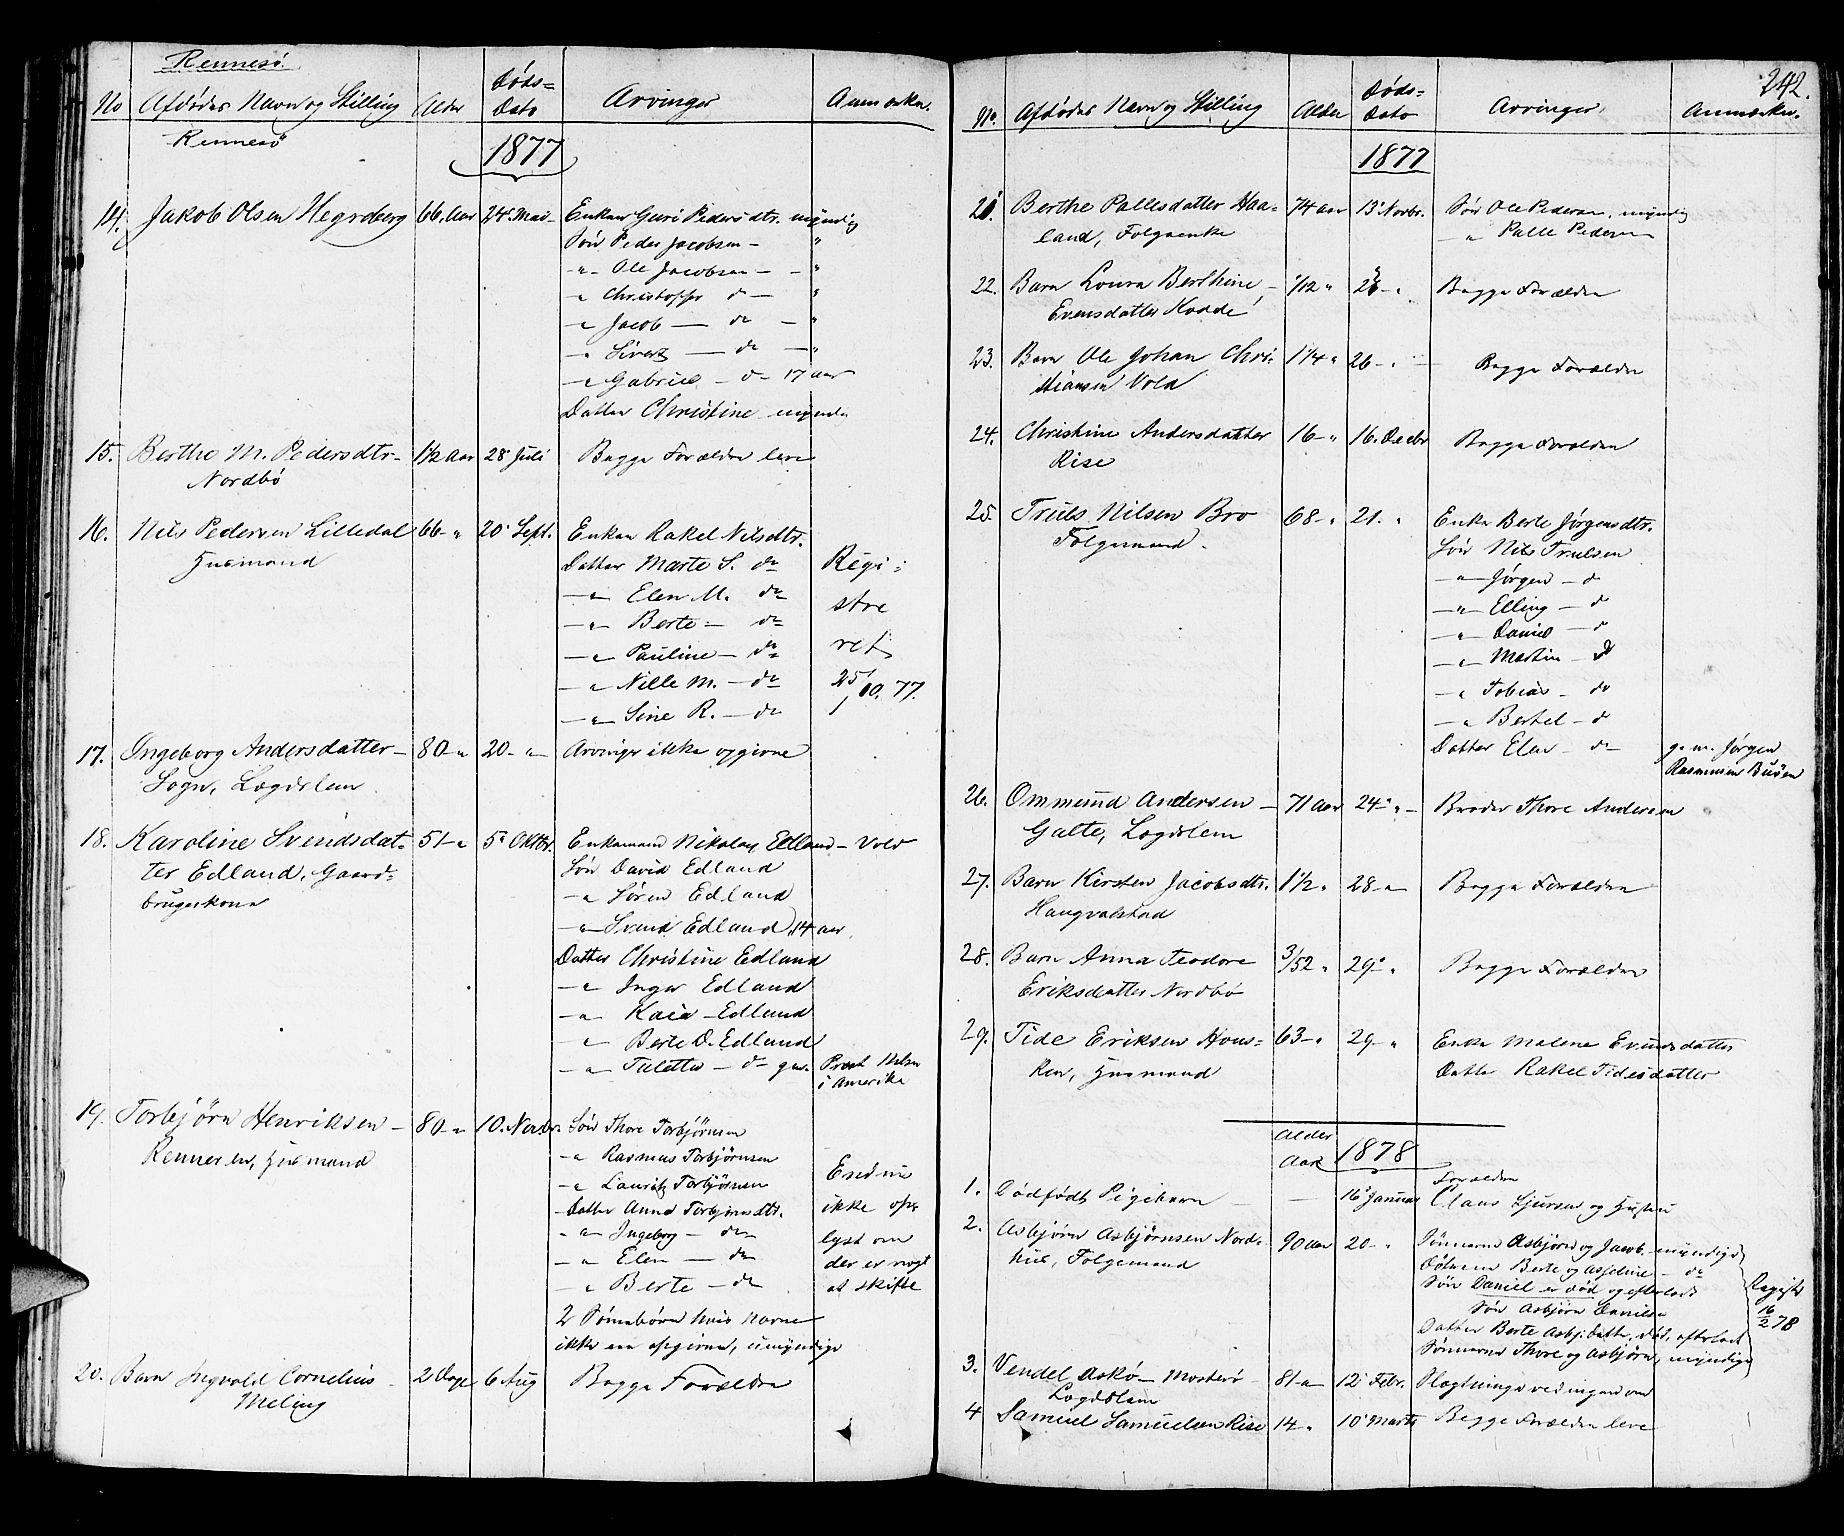 Rennesö.
No Afdødes Navn og Stilling Alder Døds= Dato Arvinger Anmærkn.
Rennesö 1877
14. Jakob Olsen Hegreberg 66. Aar 24 Mai Enken Guri Pedersdtr. myndig
Søn Peder Jacobsen — "
-"- Ole Jacobsen — "
-" Christoffer do — "
-" Jacob — do — "
-" Sivert — do — "
-" Gabriel — do 17 aar
Datter Christine mynd.
15. Berthe M. Pedersdtr. 1½ Aar 28 Juli Begge Forældre leve
Nordbø
16. Nils Pedersen Lilledal 66 - " 20 Sept. Enken Rakel Nilsdtr.
Husmand
Datter Marte S. do Regi-
-" Elen M. do stre
-" Berte — do ret
-" Pauline — do
-" Nille M. — do 25/10. 77.
-" Sine R. — do
17. Ingeborg Andersdatter 80 - " 20 - " Arvinger ikke opgivne
Sogn, Lægdslem
18. Karoline Svendsdat- 51 - " 5 Oktbr. Enkemand Nikolay Edland —
ter Edland, Gaard-
brugerkone
Søn David Edland
-" Søren Edland
-" Svend Edland, 14 aar.
Datter Christine Edland
-" Inger Edland
-" Kaia Edland
-" Berte O. Edland
-" Taletta — do
i Amerika
19. Torbjørn Henriksen 80 - " 10. Novbr. Søn Thore Torbjørnsen
Husmand
-" Rasmus Torbjørnsen
-" Lauritz Torbjørnsen Endnu
Datter Anna Torbjørnsdtr. ikke op-
-" Ingeborg — do lyst om
-" Elen — do der er nogt
-" Berte — do at skifte
2 Sønnebørn hvis Navne
ikke ere opgivne, umyndige
20. Barn Ingvald Cornelius 2 Dage 6 Aug Begge Forældre
Meling
242.
No. Afdødes Navn og Stilling Alder Døds- Dato Arvinger. Anmærkn.
1877
21. Berthe Pallesdatter Haa- 74 aar 13 Novbr. Søn Ole Pedersen, myndig
land, Folgeenke -" Palle Pedersen
22. Barn Loura Berthine 1/12 " Begge Forældre
Evensdatter Hodde
23. Barn Ole Johan Chri- 1¼ " 26 - " Begge Forældre
stiansen Vold
24. Christine Andersdatter 16 - " 16. Decbr Begge Forældre
Rise
25. Truls Nilsen Bro 68 - " 21. " Enke Berte Jørgensdtr.
Folgemand.
Søn Nils Trulsen
-" Jørgen — do
-" Elling — do
-" Daniel — do
-" Martin — do
-" Tobias — do
-" Bertel — do
Datter Elen — do g. m. Jørgen
Rasmusen Buøen
26. Ommund Andersen 71 aar 24 " Broder Thore Andersen
Galte, Lægdslem
27. Barn Kirsten Jacobsdtr. 1½ " 28 - " Begge Forældre
Haugvalstad
28. Barn Anna Teodore 3/52 " 29 " Begge Forældre
Eriksdatter Nordbø
29. Tide Eriksen Hous- 63 - " 29 - " Enke Malene Evindsdatter
Ken, Husmand Datter Rakel Tidesdatter
Alder
Aar 1878
Forældre
1. Dødfødt Pigebarn — 16 Januar Claus Sjursen og Hustru
2. Asbjørn Asbjørnsen Nord- 90 aar 20 - " Sønnerne Asbjørn og Jacob, myndige
hus, Folgemand
Døtrene Berte og Asseline — do
Søn Daniel er død og efterladt
Søn Asbjørn Danielse
Datter Berte Asbj:datter, død, efterladt
Sønnerne Thore og Asbjørn, myndige
Registr 16/2 78
3. Vendel Askö — Mosterö 81 - " 12 Febr. Slægtninge ved ingen om
Lægdslem
4 Samuel Samuelsen Rise 14 " 10 Marts Begge Forældre leve